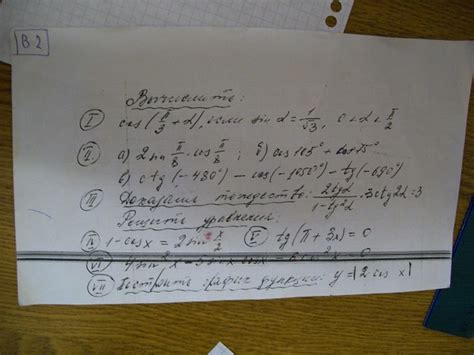 В2
Вычислить:
I cos(π/3 + α), если sin α = 1/√3, 0 < α < π/2
II. а) 2 sin π/8 · cos π/8 ; б) cos 105° + cos 75°
в) ctg(-480°) - cos(-1050°) - tg(-690°)
III Доказать тождество: 2tgα/(1-tg²α) · 3ctg2α = 3
Решить уравнения:
IV 1 - cos x = 2 sin x/2 V tg(π + 3x) = 0
VI 4 sin²x - 5 sin x cos x = 0
VII Построить график функции: y = |2 cos x|